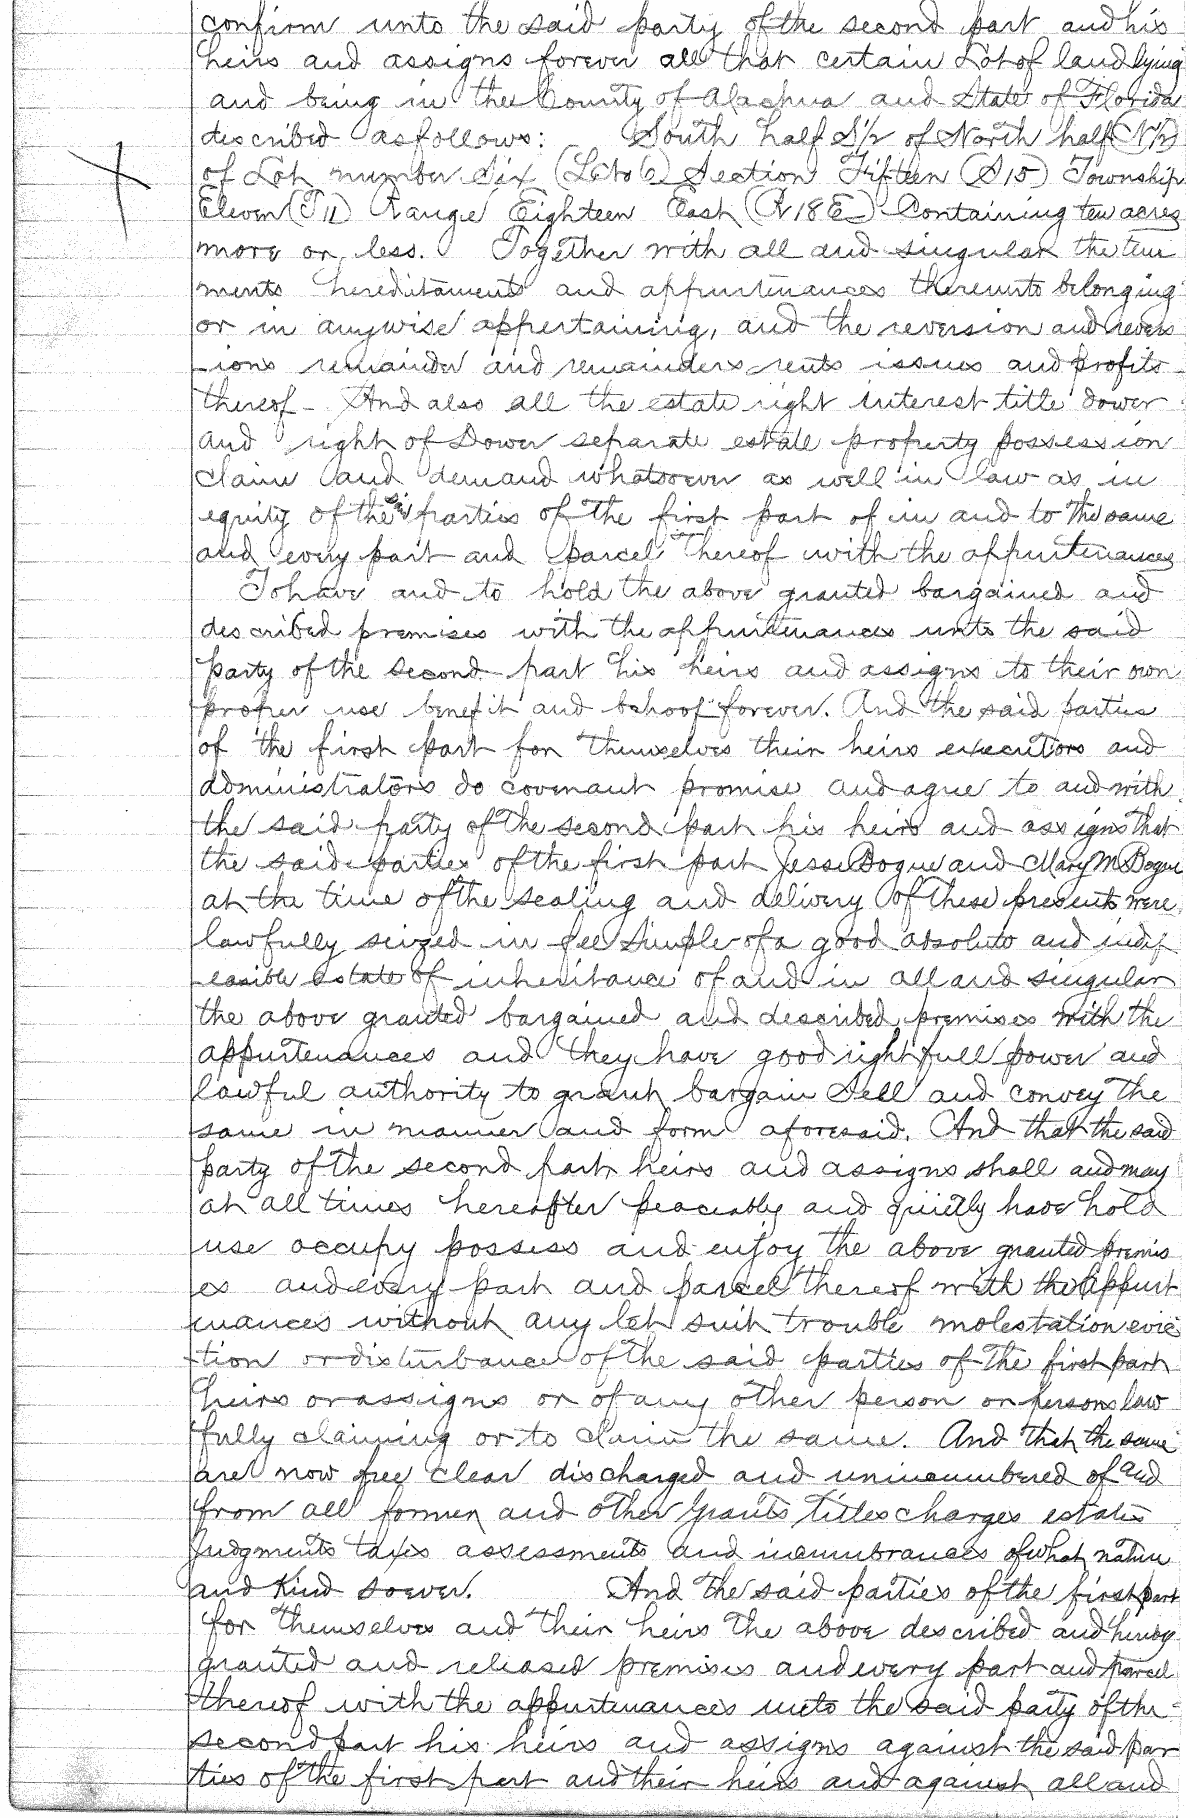 confirm unto the said party of the second part and his
heirs and assigns forever all that certain Lot of land lying
and being in the County of Alachua and State of Florida
described as follows: South half S1/2 of North half (N1/2)
of Lot number Six (Lot 6) Section Fifteen (S15) Township
Eleven (T11) Range Eighteen East (R18E) Containing ten acres
more or less. Together with all and singular the tene
ments hereditaments and appurtenances thereunto belonging
or in anywise appertaining, and the reversion and revers
-ions remainder and remainders rents issues and profits
thereof - And also all the estate right interest title dower
and right of Dower separate estate property possession
claim and demand whatsoever as well in law as in
equity of the said parties of the first part of in and to the same
and every part and parcel thereof with the appurtenances
To have and to hold the above granted bargained and
described premises with the appurtenances unto the said
party of the second part his heirs and assigns to their own
proper use benefit and behoof forever. And the said parties
of the first part for themselves their heirs executors and
administrators do covenant promise and agree to and with
the said party of the second part his heirs and assigns that
the said parties of the first part Jesse Bogue and Mary M Bogue
at the time of the sealing and delivery of these presents were
lawfully seized in fee simple of a good absolute and indef
easible estate of inheritance of and in all and singular
the above granted bargained and described premises with the
appurtenances and they have good right full power and
lawful authority to grant bargain Sell and convey the
same in manner and form aforesaid. And that the said
party of the second part heirs and assigns shall and may
at all times hereafter peaceably and quietly have hold
use occupy possess and enjoy the above granted premis
es and every part and parcel thereof with the appurt
nances without any let suit trouble molestation evic
-tion or disturbance of the said parties of the first part
heirs or assigns or of any other person or persons law
fully claiming or to claim the same. And that the same
are now free clear discharged and unincumbered of and
from all former and other Grants titles charges estates
Judgments taxes assessments and incumbrances of what nature
and Kind soever. And the said parties of the first part
for themselves and their heirs the above described and hereby
granted and released premises and every part and parcel
thereof with the appurtenances unto the said party of the
second part his heirs and assigns against the said par
ties of the first part and their heirs and against all and